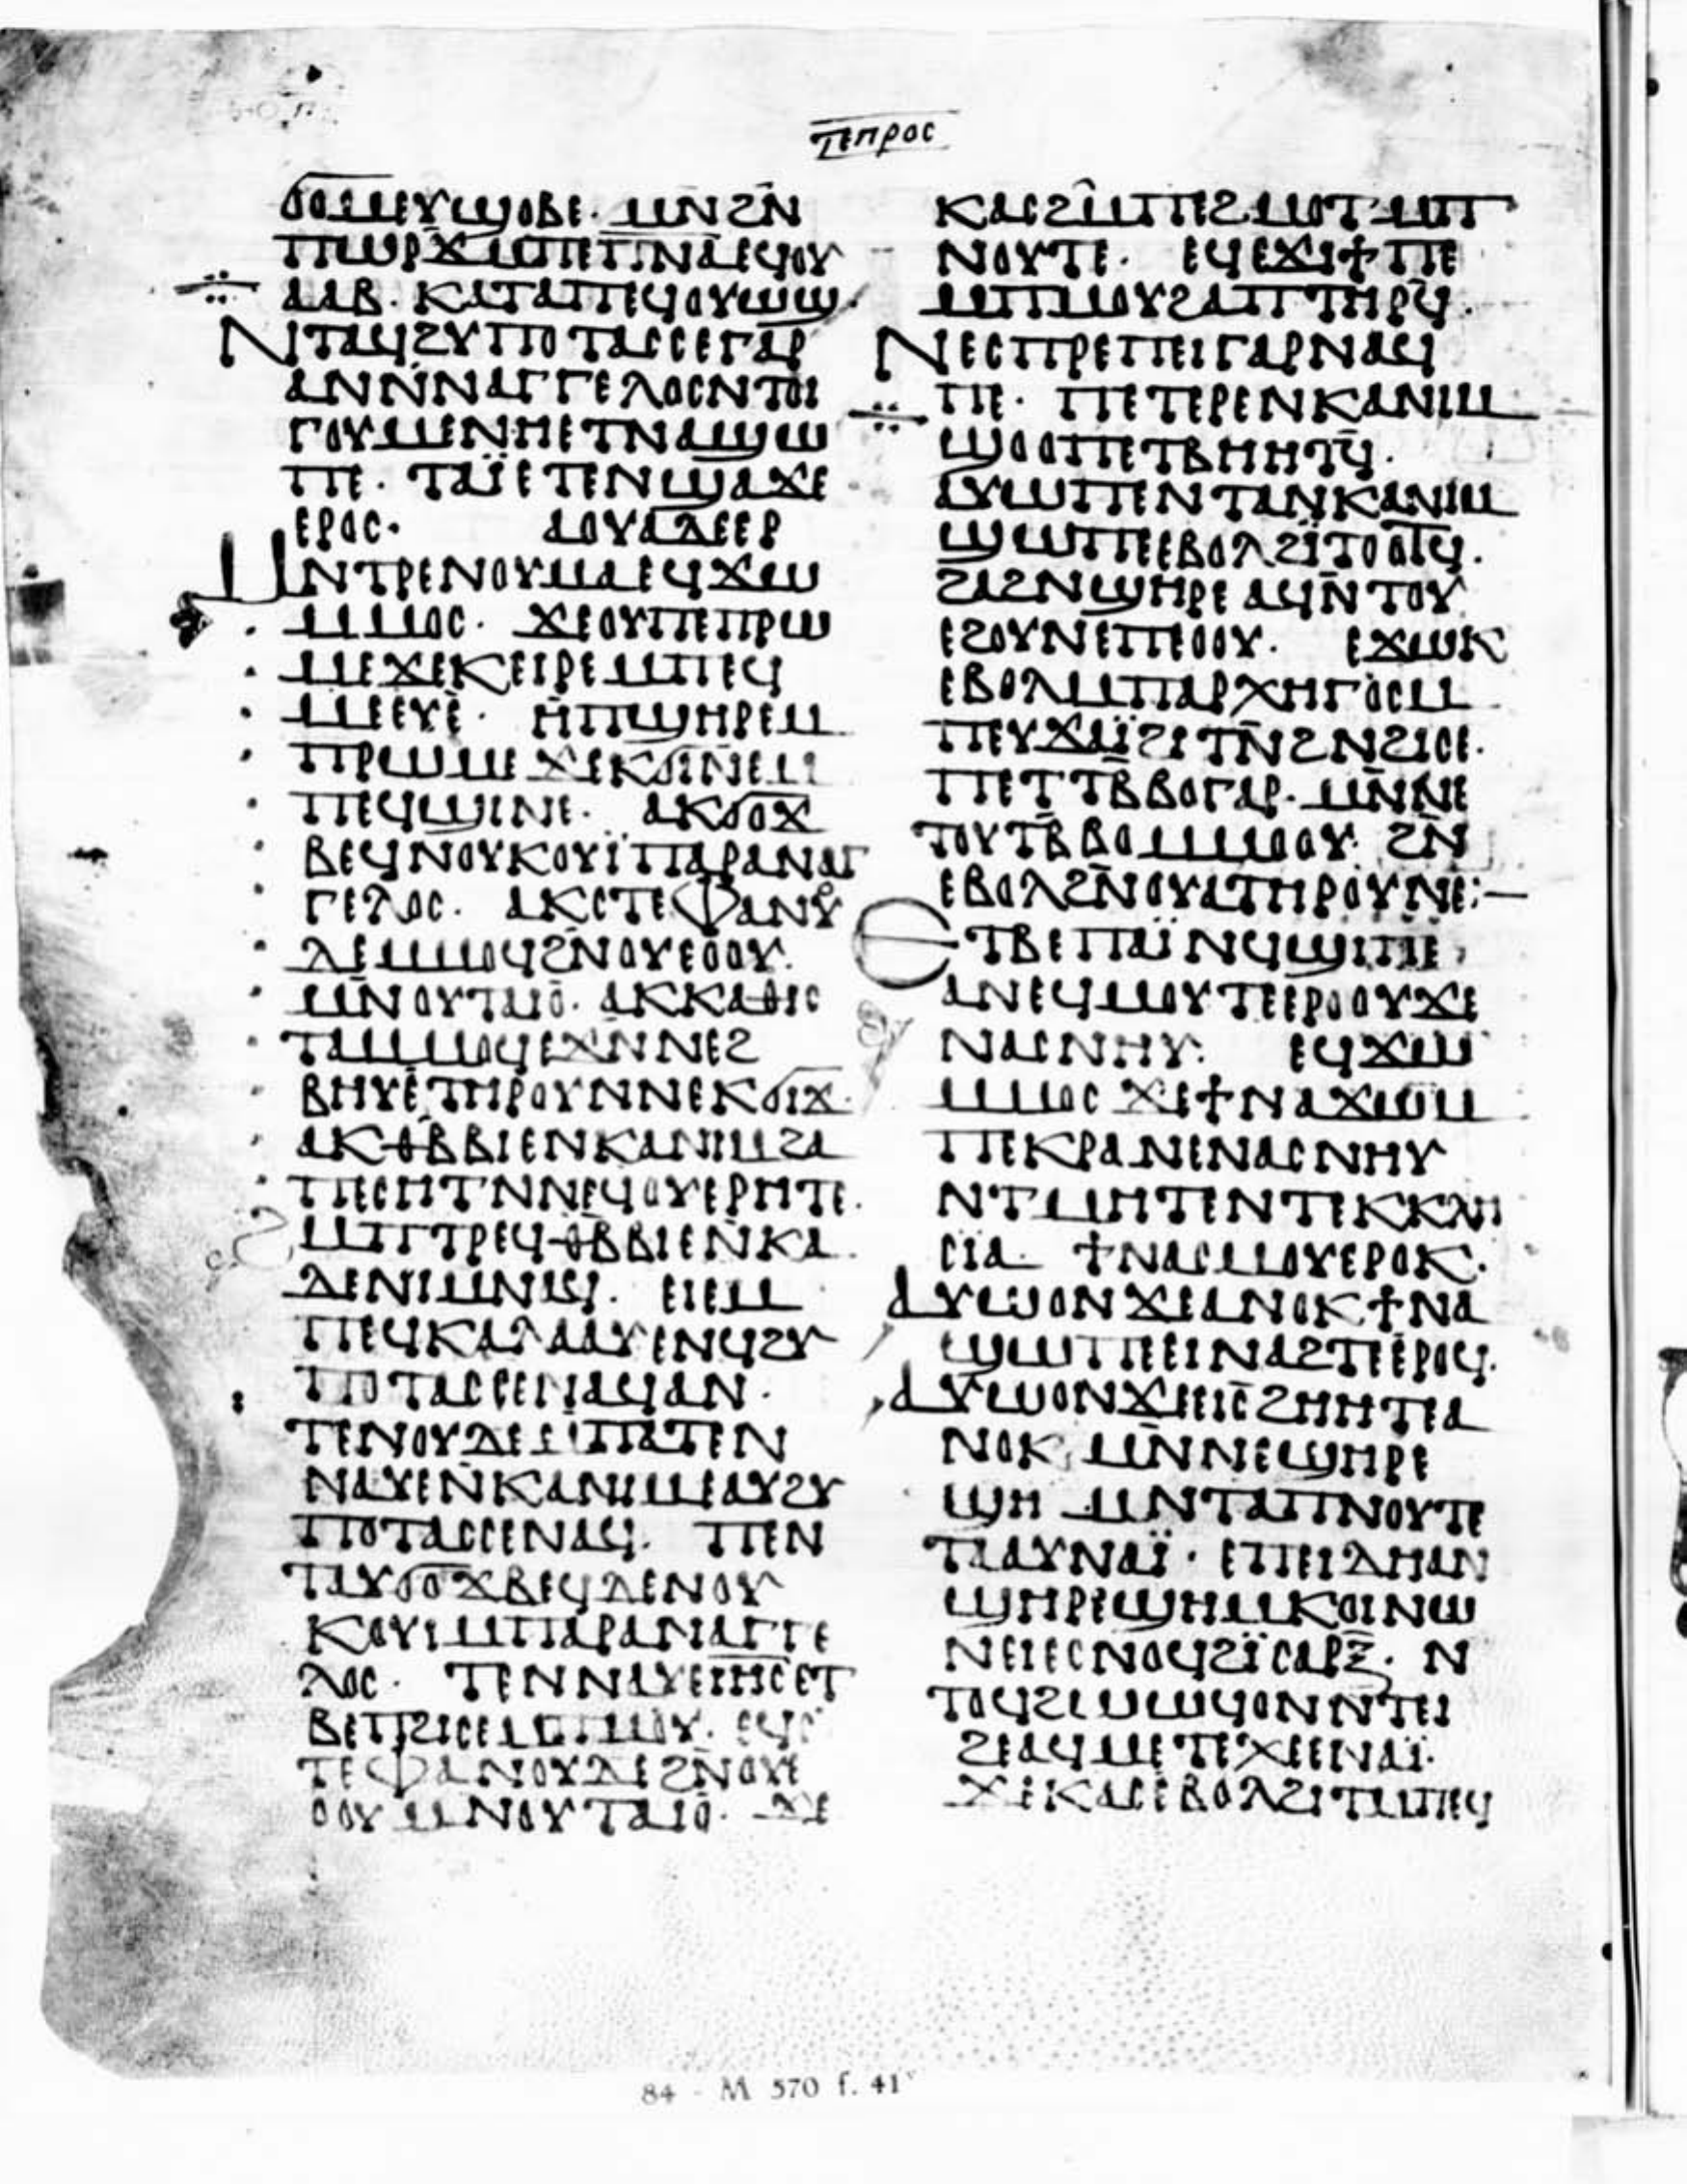 ⲧⲉⲡⲣⲟⲥ
ϭⲟⲙⲉⲩϣⲟⲃⲉ· ⲙⲛ̄ϩⲛ̄
ⲡⲱⲣϫ̄ⲙ̄ⲡⲉⲡ̄ⲛ̄ⲁⲉϥⲟⲩ
ⲁⲁⲃ· ⲕⲁⲧⲁⲡⲉϥⲟⲩⲱϣ·
ⲛⲧⲁϥϩⲩⲡⲟⲧⲁⲥⲥⲉⲅⲁⲣ
ⲁⲛⲛ̄ⲛⲁⲅⲅⲉⲗⲟⲥⲛⲧⲟⲓ
ⲅⲟⲩⲙⲉⲛⲏⲉⲧⲛⲁϣⲱ
ⲡⲉ· ⲧⲁⲓ̈ⲉⲧⲉⲛϣⲁϫⲉ
ⲉⲣⲟⲥ· ⲇⲟⲩⲁⲇⲉⲉⲣ
ⲙⲛⲧⲣⲉⲛⲟⲩⲙⲁⲉϥϫⲱ
ⲙⲙⲟⲥ· ϫⲉⲟⲩⲡⲉⲡⲣⲱ
ⲙⲉϫⲉⲕⲉⲓⲣⲉⲙⲡⲉϥ
ⲙⲉⲉⲩⲉ̀· ⲏ̀ⲡϣⲏⲣⲉⲙ
ⲡⲣⲱⲙⲉϫⲉⲕϭⲓⲛⲉⲙ
ⲡⲉϥϣⲓⲛⲉ· ⲁⲕϭⲟϫ
ⲃⲉϥⲛⲟⲩⲕⲟⲩⲓ̈ⲡⲁⲣⲁⲛⲁⲅ
ⲅⲉⲗⲟⲥ· ⲁⲕⲥⲧⲉⲫⲁⲛⲟⲩ
ⲇⲉⲙⲙⲟϥϩⲛ̄ⲟⲩⲉⲟⲟⲩ·
ⲙⲛ̄ⲟⲩⲧⲁⲓⲟ̀· ⲁⲕⲕⲁⲑⲓⲥ
ⲧⲁⲙⲙⲟϥⲉϫⲛ̄ⲛⲉϩ
ⲃⲏⲩⲉ̀ⲧⲏⲣⲟⲩⲛⲛⲉⲕϭⲓϫ·
ⲁⲕⲑⲃ̄ⲃⲓⲉⲛⲕⲁⲛⲓⲙϩⲁ
ⲡⲉⲥⲏⲧⲛⲛⲉϥⲟⲩⲉⲣⲏⲧⲉ·
ⲙⲡⲧⲣⲉϥⲑⲃ̄ⲃⲓⲉⲛ̀ⲕⲁ
ⲇⲉⲛⲓⲙⲛⲁϥ· ⲉⲓⲉⲙ
ⲡⲉϥⲕⲁⲗⲁⲁⲩⲉⲛϥϩⲩ
ⲡⲟⲧⲁⲥⲥⲉⲛⲁϥⲁⲛ·
ⲧⲉⲛⲟⲩⲇⲉⲙⲡⲁⲧⲉⲛ
ⲛⲁⲩⲉⲛ̀ⲕⲁⲛⲓⲙⲉⲁⲩϩⲩ
ⲡⲟⲧⲁⲥⲥⲉⲛⲁϥ· ⲡⲉⲛ
ⲧⲁⲩϭⲟϫⲃⲉϥⲇⲉⲛⲟⲩ
ⲕⲟⲩⲓⲙⲡⲁⲣⲁⲛⲁⲅⲅⲉ
ⲗⲟⲥ· ⲧⲉⲛⲛⲁⲩⲉⲓⲏ̄ⲥ̄ⲉⲧ
ⲃⲉⲡϩⲓⲥⲉⲙⲡⲙⲟⲩ· ⲉϥⲥ
ⲧⲉⲫⲁⲛⲟⲩⲇⲉϩⲛ̄ⲟⲩⲉ
ⲟⲟⲩⲙⲛⲟⲩⲧⲁⲓⲟ̀· ϫⲉ
ⲕⲁⲥϩ̂ⲙⲡⲉϩⲙⲟⲧⲙⲡ
ⲛⲟⲩⲧⲉ· ⲉϥⲉϫⲓϯⲡⲉ
ⲙⲡⲙⲟⲩϩⲁⲡⲧⲏⲣϥ·
ⲛⲉⲥⲡⲣⲉⲡⲉⲓⲅⲁⲣⲛⲁϥ
ⲡⲉ· ⲡⲉⲧⲉⲣⲉⲛⲕⲁⲛⲓⲙ
ϣⲟⲟⲡⲉⲧⲃⲏⲏⲧϥ̄·
ⲁⲩⲱⲡⲉⲛⲧⲁⲛⲕⲁⲛⲓⲙ
ϣⲱⲡⲉⲉⲃⲟⲗϩⲓ̈ⲧⲟⲟⲧϥ·
ϩⲁϩⲛϣⲏⲣⲉⲁϥⲛ̄ⲧⲟⲩ
ⲉϩⲟⲩⲛⲉⲡⲉⲟⲟⲩ· ⲉϫⲱⲕ
ⲉⲃⲟⲗⲙⲡⲁⲣⲭⲏⲅⲟⲥⲙ
ⲡⲉⲩϫⲁⲓ̈ϩⲓⲧⲛ̄ϩⲛϩⲓⲥⲉ·
ⲡⲉⲧⲧⲃ̄ⲃⲟⲅⲁⲣ· ⲙⲛ̄ⲛⲉ
ⲧⲟⲩⲧⲃ̄ⲃⲟⲙⲙⲟⲟⲩ· ϩⲛ̄
ⲉⲃⲟⲗϩⲛ̄ⲟⲩⲁⲧⲏⲣⲟⲩⲛⲉ:—
ⲉⲧⲃⲉⲡⲁⲓ̈ⲛϥϣⲓⲡⲉ
ⲁⲛⲉϥⲙⲟⲩⲧⲉⲉⲣⲟⲟⲩϫⲉ
ⲛⲁⲥⲛⲏⲩ· ⲉϥϫⲱ
ⲙⲙⲟⲥϫⲉϯⲛⲁϫⲱⲙ
ⲡⲉⲕⲣⲁⲛⲉⲛⲁⲥⲛⲏⲩ
ⲛⲧⲙⲏⲧⲉⲛⲧⲉⲕⲕⲗⲏ
ⲥⲓⲁ· ϯⲛⲁⲥⲙⲟⲩⲉⲣⲟⲕ·
ⲁⲩⲱⲟⲛϫⲉⲁⲛⲟⲕϯⲛⲁ
ϣⲱⲡⲉⲉⲓⲛⲁϩⲧⲉⲉⲣⲟϥ·
ⲁⲩⲱⲟⲛϫⲉⲉⲓⲥϩⲏⲏⲧⲉⲁ
ⲛⲟⲕⲙⲛ̄ⲛⲉϣⲏⲣⲉ
ϣⲏⲙⲛⲧⲁⲡⲛⲟⲩⲧⲉ
ⲧⲁⲁⲩⲛⲁⲓ̈· ⲉⲡⲉⲓⲇⲏⲁⲛ
ϣⲏⲣⲉϣⲏⲙⲕⲟⲓⲛⲱ
ⲛⲉⲓⲉⲥⲛⲟϥϩⲓ̈ⲥⲁⲣⲝ· ⲛ
ⲧⲟϥϩⲱⲱϥⲟⲛⲛⲧⲉⲓ
ϩⲉⲁϥⲙⲉⲧⲉⲭⲉⲉⲛⲁⲓ̈·
ϫⲉⲕⲁⲥⲉⲃⲟⲗϩⲓⲧⲙⲡⲉϥ
84 - M 570 f. 41v